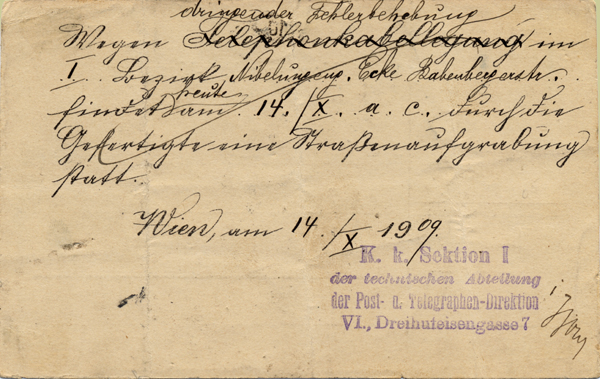 dringender Fehlerbehebung
Wegen Telephonkabellegung im
I. Bezirk, Nibelungeng. Ecke Babenbergerstr.
heute
findet am 14./X. a. c. durch die
Gefertigte eine Straßenaufgrabung
statt.
Wien, am 14./X 1909.
K. k. Sektion I
der technischen Abteilung
der Post- u. Telegraphen-Direktion
VI., Dreihufeisengasse 7